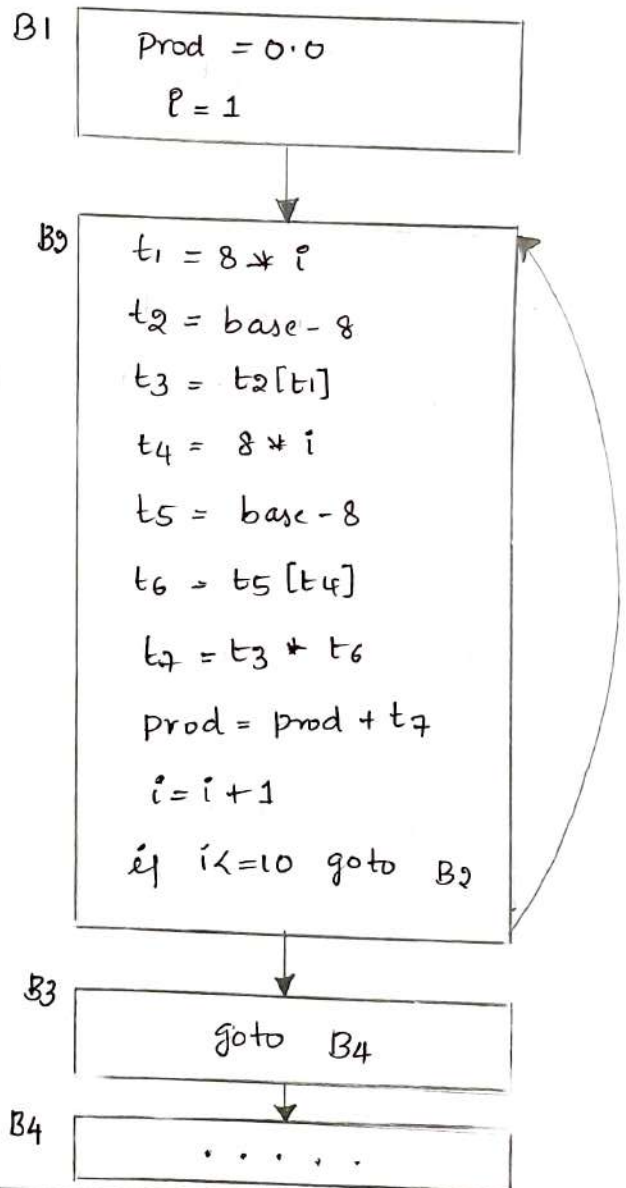 B1
Prod = 0.0
i = 1
B2
t1 = 8 * i
t2 = base - 8
t3 = t2[t1]
t4 = 8 * i
t5 = base - 8
t6 = t5[t4]
t7 = t3 * t6
prod = prod + t7
i = i + 1
if i<=10 goto B2
B3
goto B4
B4
. . . . .